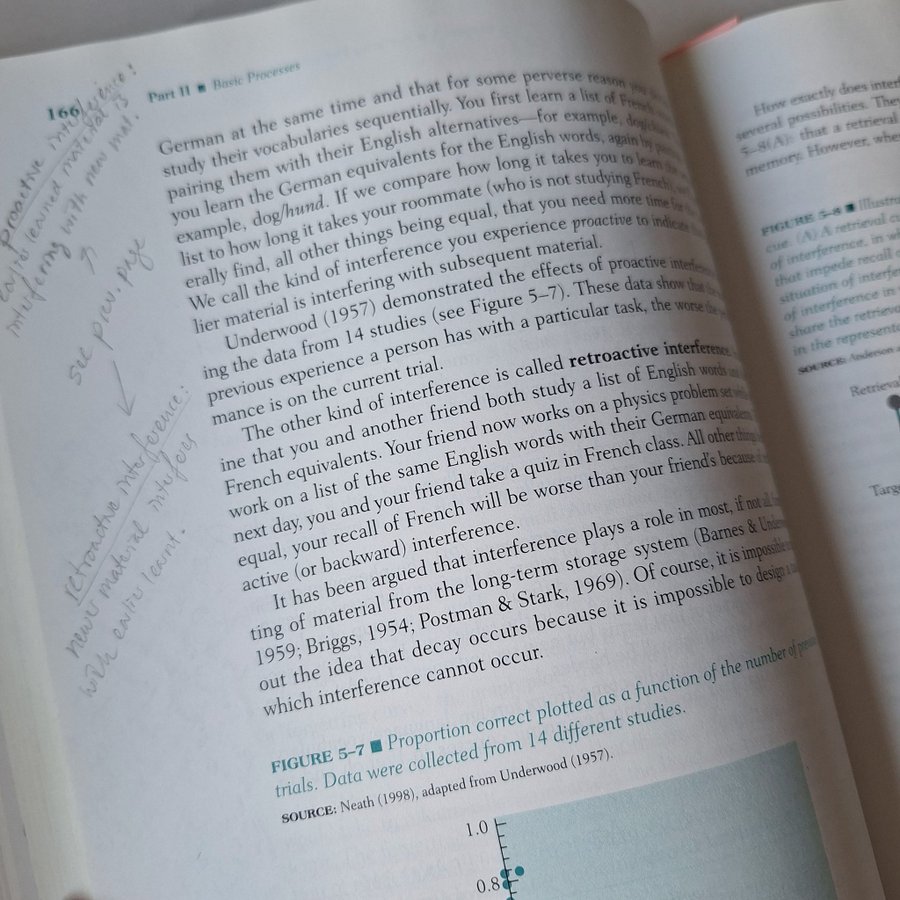 166
Part II ■ Basic Processes
proactive interference:
earlier learned material is
interfering with new mat.
see prev. page
retroactive interference:
newer material interferes
with earlier learnt.
German at the same time and that for some perverse reason you
study their vocabularies sequentially. You first learn a list of French
pairing them with their English alternatives—for example, dog/
you learn the German equivalents for the English words, again by
example, dog/hund. If we compare how long it takes you to learn the
list to how long it takes your roommate (who is not studying French),
erally find, all other things being equal, that you need more time for
We call the kind of interference you experience proactive to indicate
lier material is interfering with subsequent material.
Underwood (1957) demonstrated the effects of proactive
ing the data from 14 studies (see Figure 5–7). These data show that the
previous experience a person has with a particular task, the worse the
mance is on the current trial.
The other kind of interference is called retroactive interference.
ine that you and another friend both study a list of English words
French equivalents. Your friend now works on a physics problem set
work on a list of the same English words with their German
next day, you and your friend take a quiz in French class. All other things
equal, your recall of French will be worse than your friend's because
active (or backward) interference.
It has been argued that interference plays a role in most, if not all,
ting of material from the long-term storage system (Barnes &
1959; Briggs, 1954; Postman & Stark, 1969). Of course, it is impossible
out the idea that decay occurs because it is impossible to design a
which interference cannot occur.
FIGURE 5–7 ■ Proportion correct plotted as a function of the number of
trials. Data were collected from 14 different studies.
SOURCE: Neath (1998), adapted from Underwood (1957).
1.0
0.8
How exactly does
several possibilities. They
5–8(A): that a retrieval
memory. However,
FIGURE 5–8 ■
cue. (A) A retrieval
of interference, in
that impede recall
situation of
of interference in
share the
in the
SOURCE: Anderson